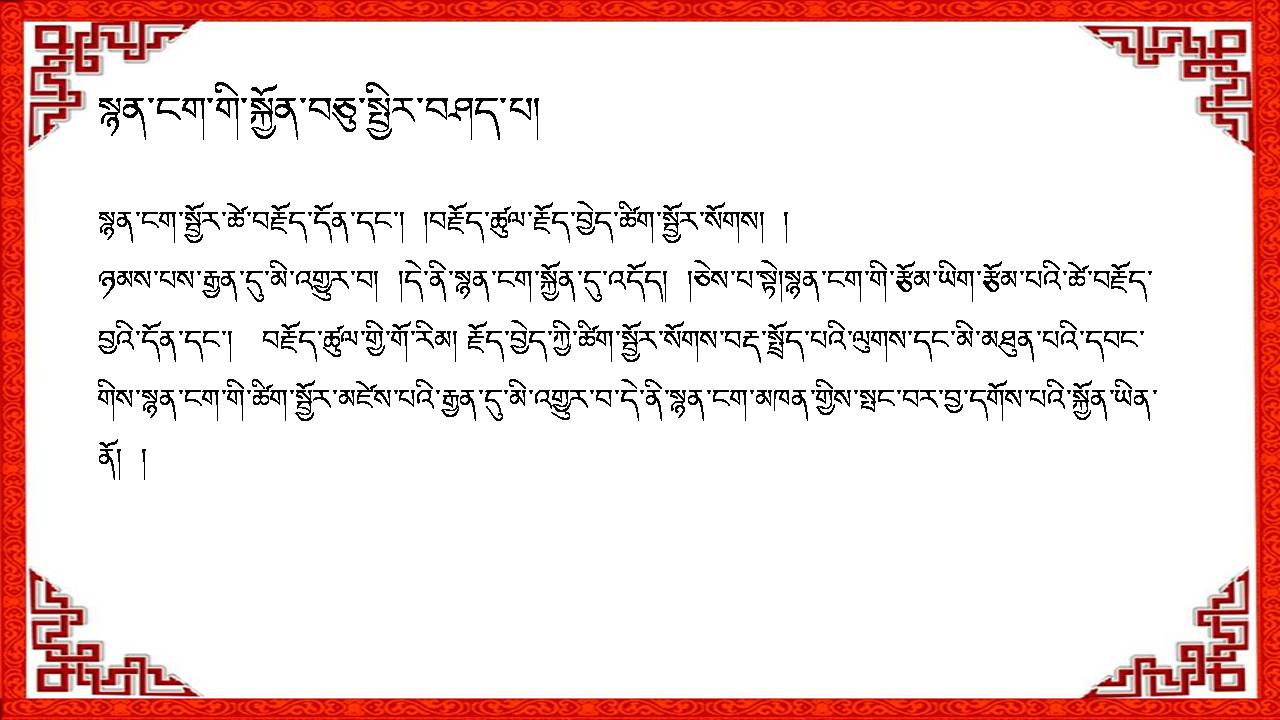 སྙན་ངག་གི་སྐྱོན་བཅུ་སྤྱིར་བཤད་པ།
སྙན་ངག་སྦྱོར་ཚེ་བརྗོད་དོན་དང་། །བརྗོད་ཚུལ་རྗོད་བྱེད་ཚིག་སྦྱོར་སོགས། །
ཉམས་པས་རྒྱན་དུ་མི་འགྱུར་བ། །དེ་ནི་སྙན་ངག་སྐྱོན་དུ་འདོད། །ཅེས་པ་སྟེ།སྙན་ངག་གི་རྩོམ་ཡིག་རྩོམ་པའི་ཚེ་བརྗོད་
བྱའི་དོན་དང་། བརྗོད་ཚུལ་གྱི་གོ་རིམ། རྗོད་བྱེད་ཀྱི་ཚིག་སྦྱོར་སོགས་བརྡ་སྤྲོད་པའི་ལུགས་དང་མི་མཐུན་པའི་དབང་
གིས་སྙན་ངག་གི་ཚིག་སྦྱོར་མཛེས་པའི་རྒྱན་དུ་མི་འགྱུར་བ་དེ་ནི་སྙན་ངག་མཁན་གྱིས་སྤང་བར་བྱ་དགོས་པའི་སྐྱོན་ཡིན་
ནོ། །